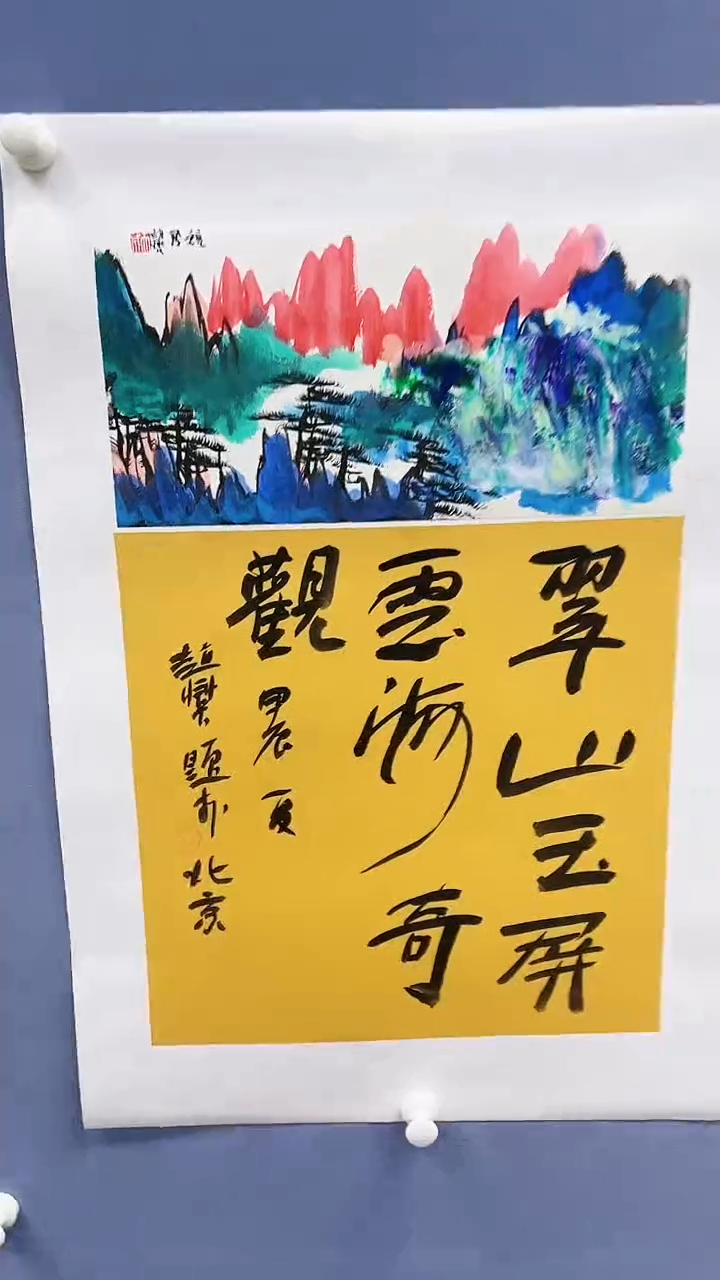 翠山玉屏
雲海奇
觀
甲辰夏
趙樂題於北京